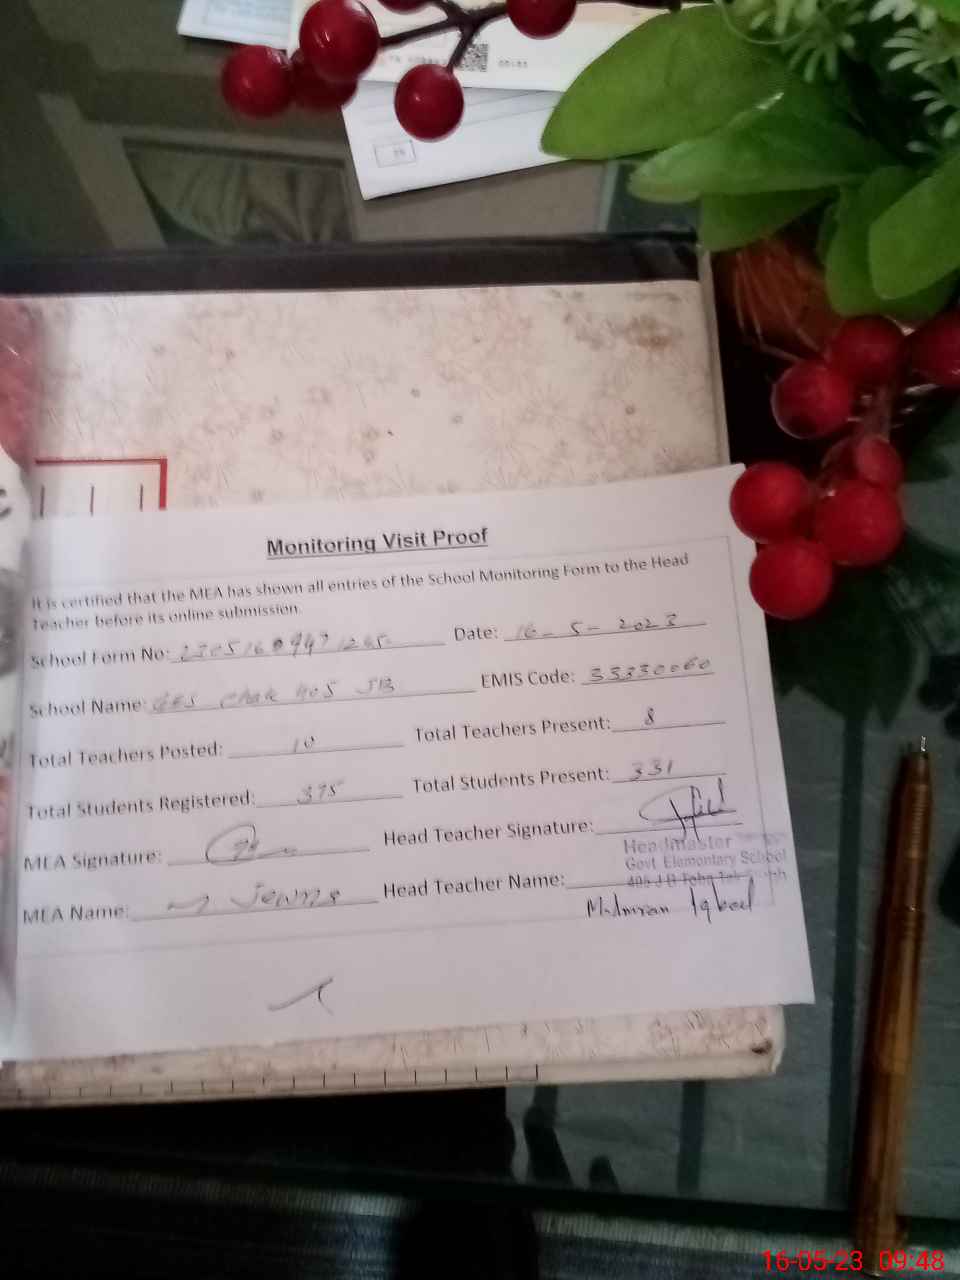 Monitoring Visit Proof
It is certified that the MEA has shown all entries of the School Monitoring Form to the Head
Teacher before its online submission.
School Form No: Date: 16-5-2023
School Name: GES Chak 405 JB EMIS Code: 33330060
Total Teachers Posted: 10 Total Teachers Present: 8
Total Students Registered: 375 Total Students Present: 331
MEA Signature: Head Teacher Signature:
Headmaster
Govt Elementary School
MEA Name: Head Teacher Name: 405 J B
M. Imran Iqbal
16-05-23 09:48